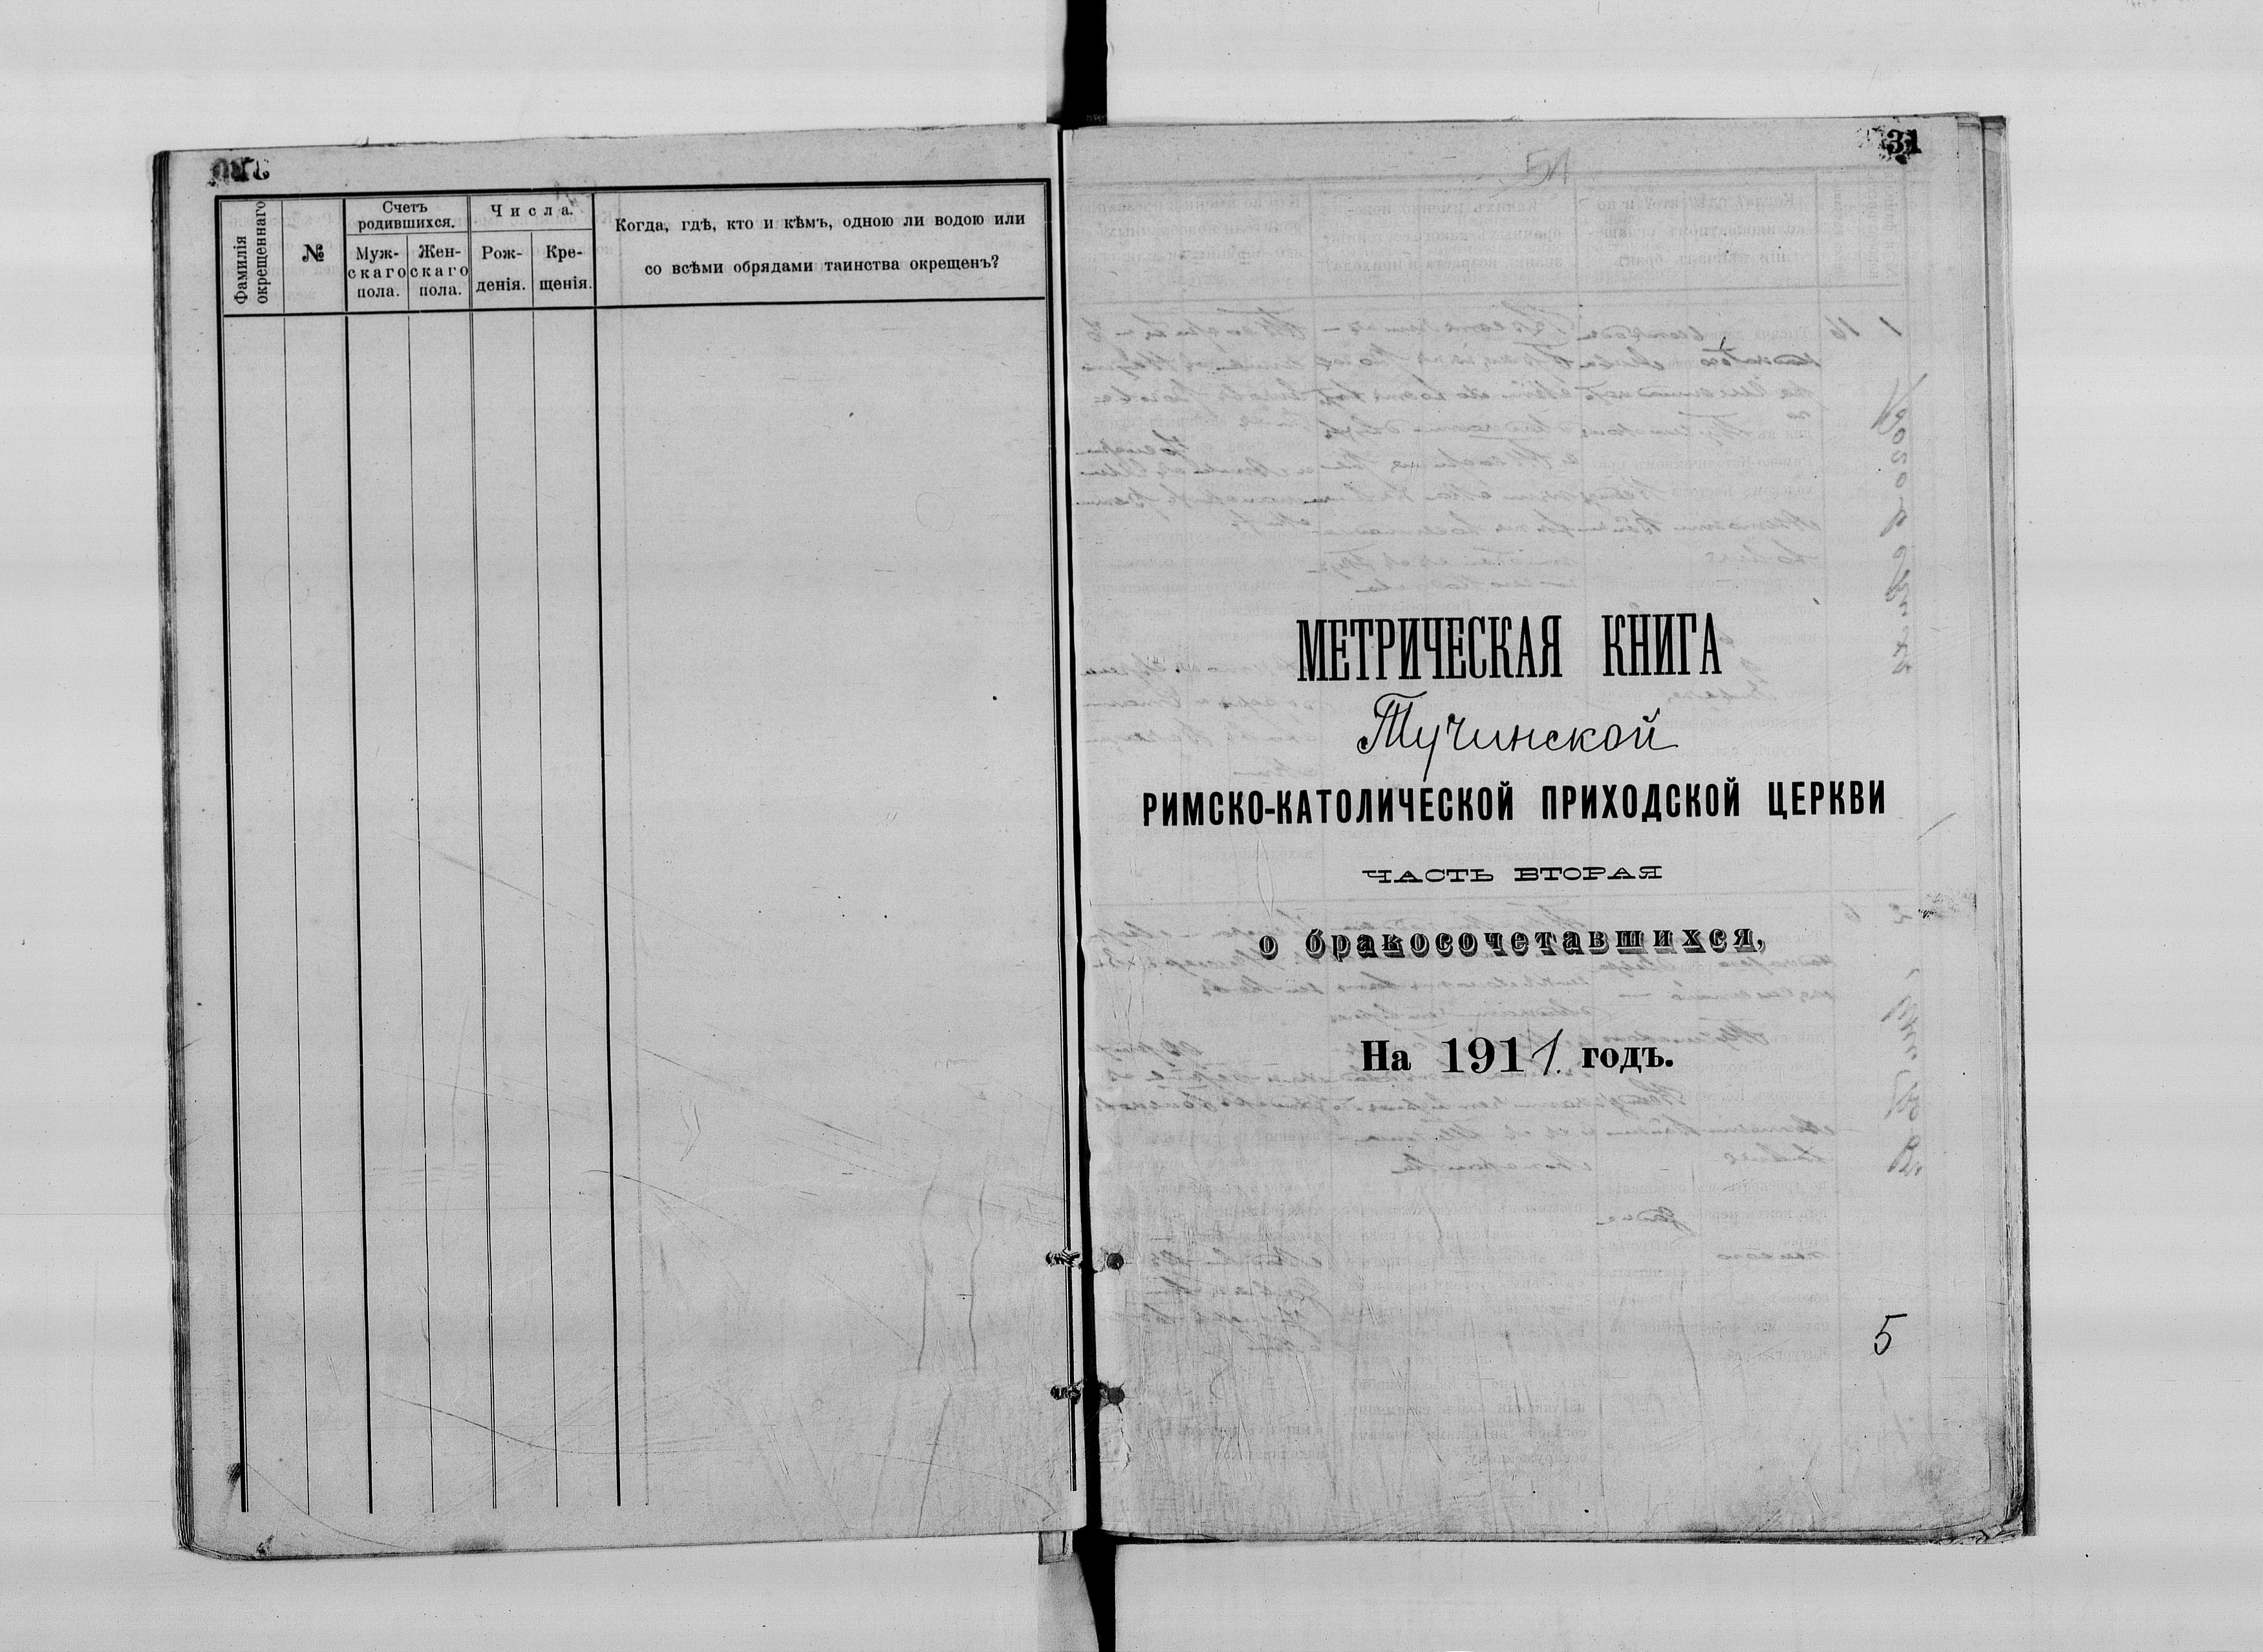 Фамилія окрещеннаго
№
Счетъ родившихся.
Муж-скаго пола.
Жен-скаго пола.
Числа.
Рож-денія.
Кре-щенія.
Когда, гдѣ, кто и кѣмъ, одною ли водою или
со всѣми обрядами таинства окрещенъ?
31
51
МЕТРИЧЕСКАЯ КНИГА
Тучинской
РИМСКО-КАТОЛИЧЕСКОЙ ПРИХОДСКОЙ ЦЕРКВИ
ЧАСТЬ ВТОРАЯ
о бракосочетавшихся,
На 1911. годъ.
5